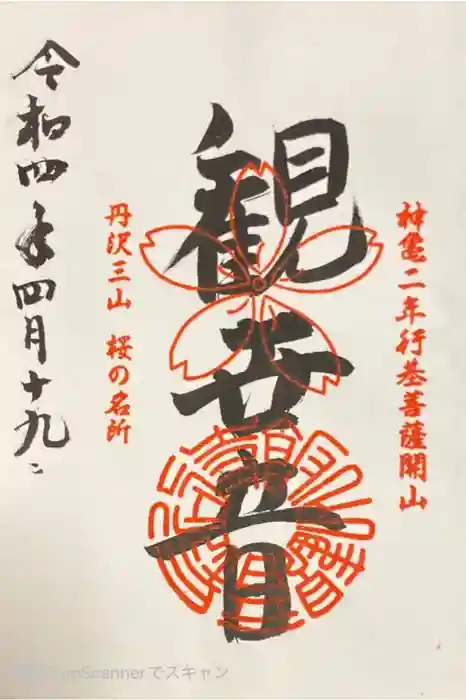 神亀二年行基菩薩開山
観世音
丹沢三山 桜の名所
令和四年四月十九
Scannerでスキャン